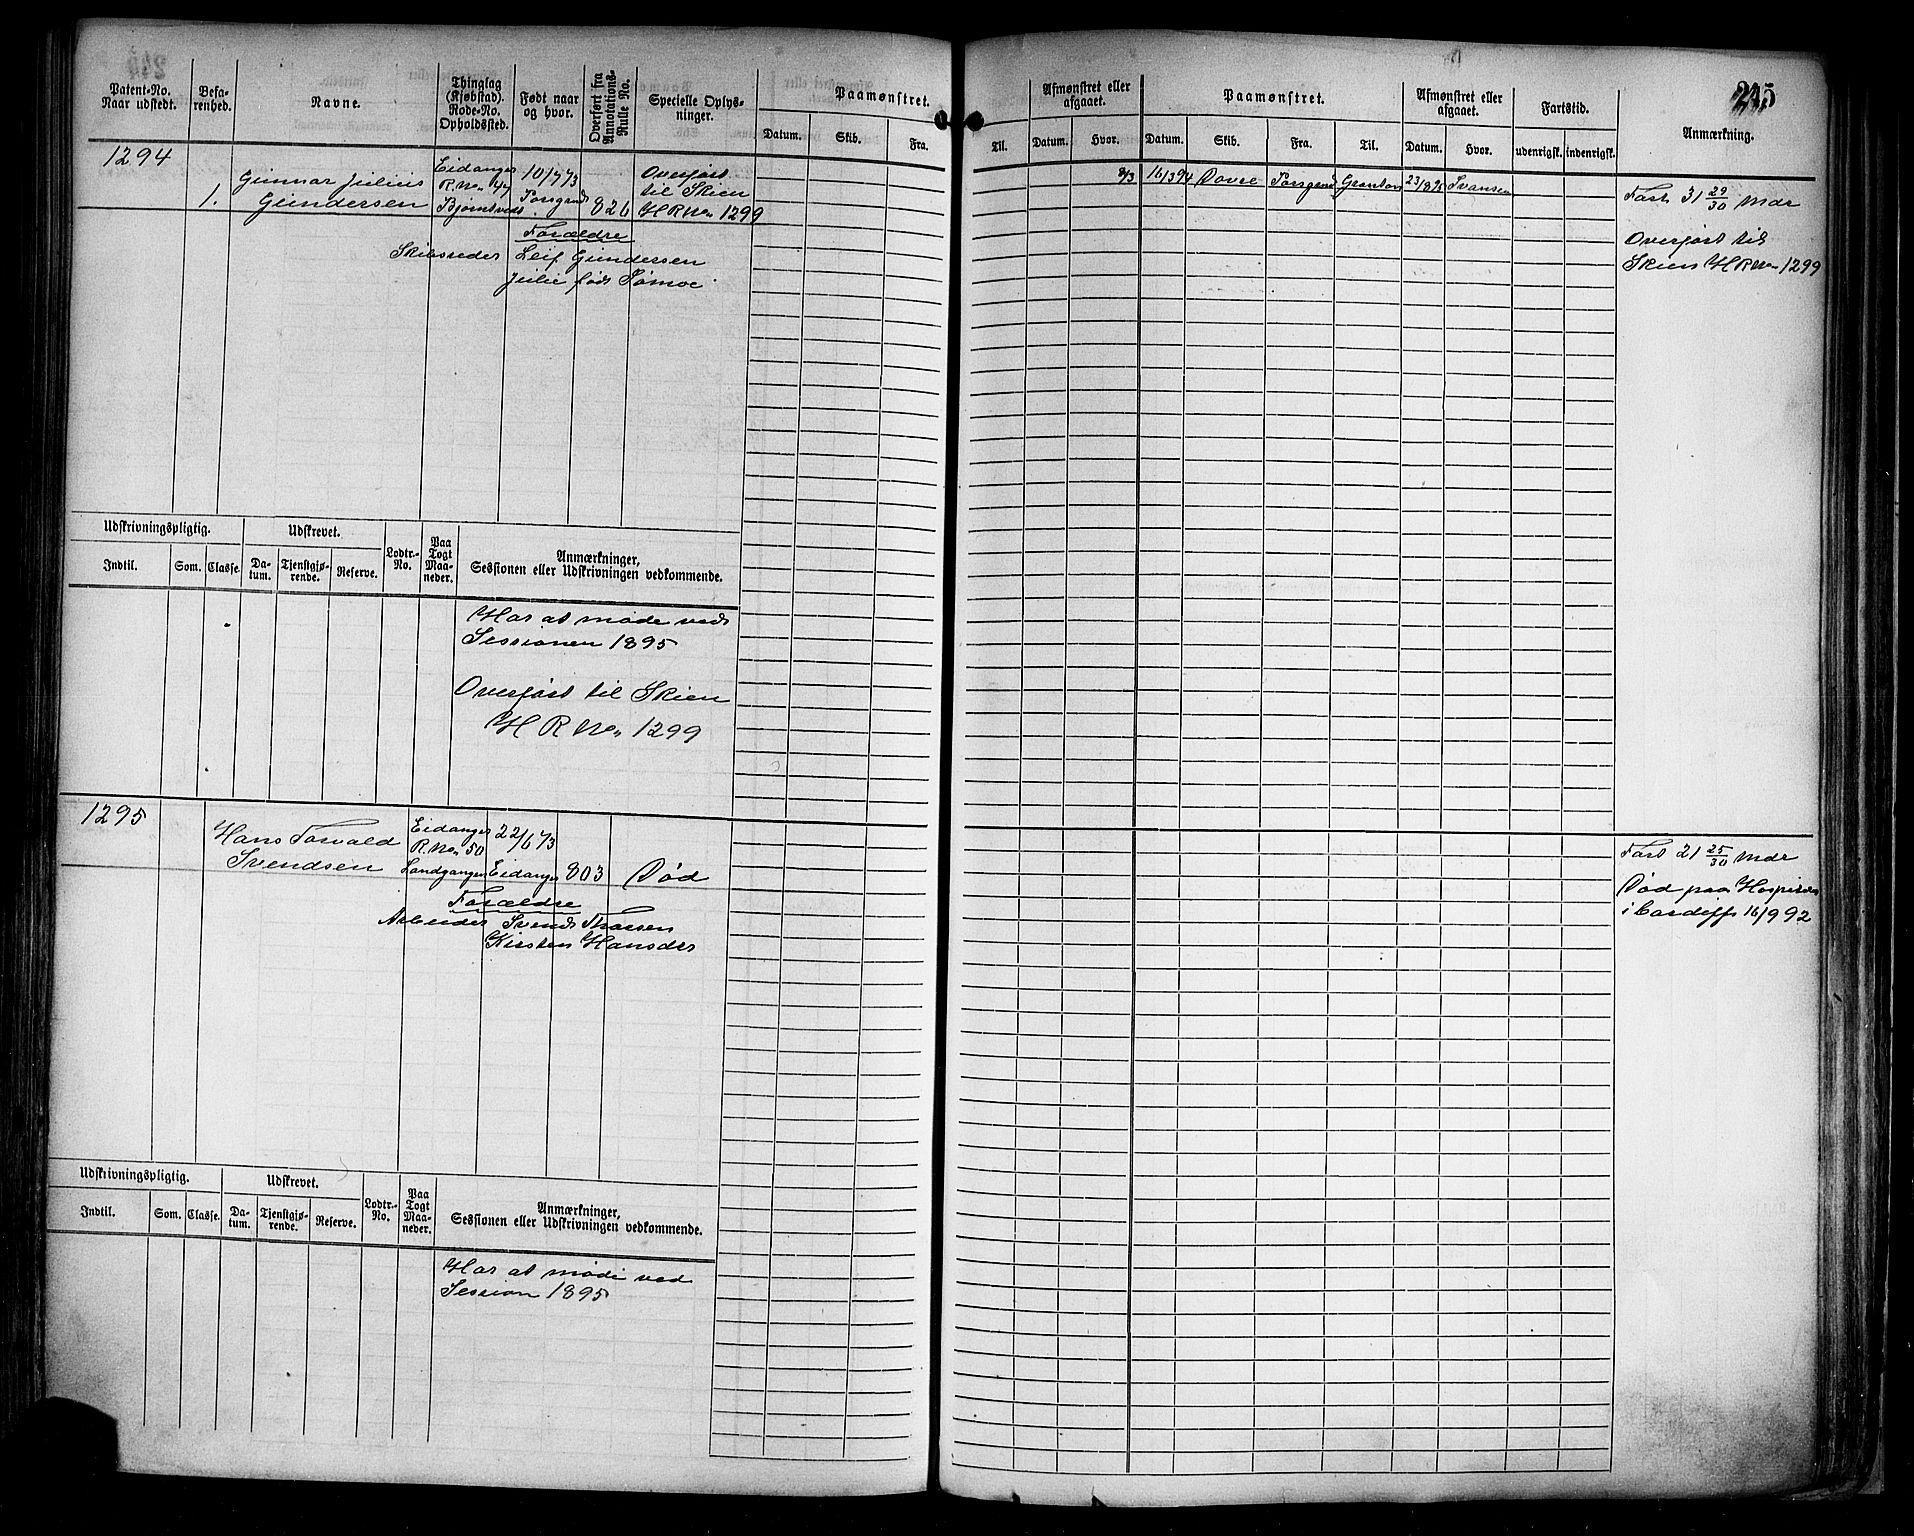 245
Patent-No. Naar udstedt.
Befarenhed.
Navne.
Thinglag (Kjøbstad). Rode-No. Opholdssted.
Født naar og hvor.
Overført fra Annotations-Rulle No.
Specielle Oplysninger.
Paamønstret.
Datum. Skib. Fra. Til.
Afmønstret eller afgaaet.
Datum. Hvor.
Paamønstret.
Datum. Skib. Fra. Til.
Afmønstret eller afgaaet.
Datum. Hvor.
Fartstid.
udenrigsk. indenrigsk.
Anmærkning.
1294
1.
Gunnar Julius
Gundersen
Eidanger
R No. 47
Bjørntvedt
10/7 73
Porsgrund
826
Overført
til Skien
H R No. 1299
Forældre
Skibsreder Leif Gundersen
Julie født
16/3 94
Porsgrund Granton 23/8 95 Svansen
Fart 31 29/30 Mdr
Overført til
Skien H R No. 1299
Udskrivningspligtig.
Indtil. Som. Classe.
Udskrevet.
Datum. Tjenstgjørende. Reserve.
Lodtr.-No.
Paa Togt Maaneder.
Anmærkninger,
Sessionen eller Udskrivningen vedkommende.
Har at møde ved
Sessionen 1895
Overført til Skien
H R No. 1299
1295
Hans Torvald
Svendsen
Eidanger
R. No. 50
Landgangen
22/6 73
Eidanger
803
Død
Forældre
Arbeider Svend
Kirsten Hansdtr
Fart 21 25/30 Mdr
Død paa Hospitalet
i Cardiff 16/9 92
Udskrivningspligtig.
Indtil. Som. Classe.
Udskrevet.
Datum. Tjenstgjørende. Reserve.
Lodtr.-No.
Paa Togt Maaneder.
Anmærkninger,
Sessionen eller Udskrivningen vedkommende.
Har at møde ved
Session 1895